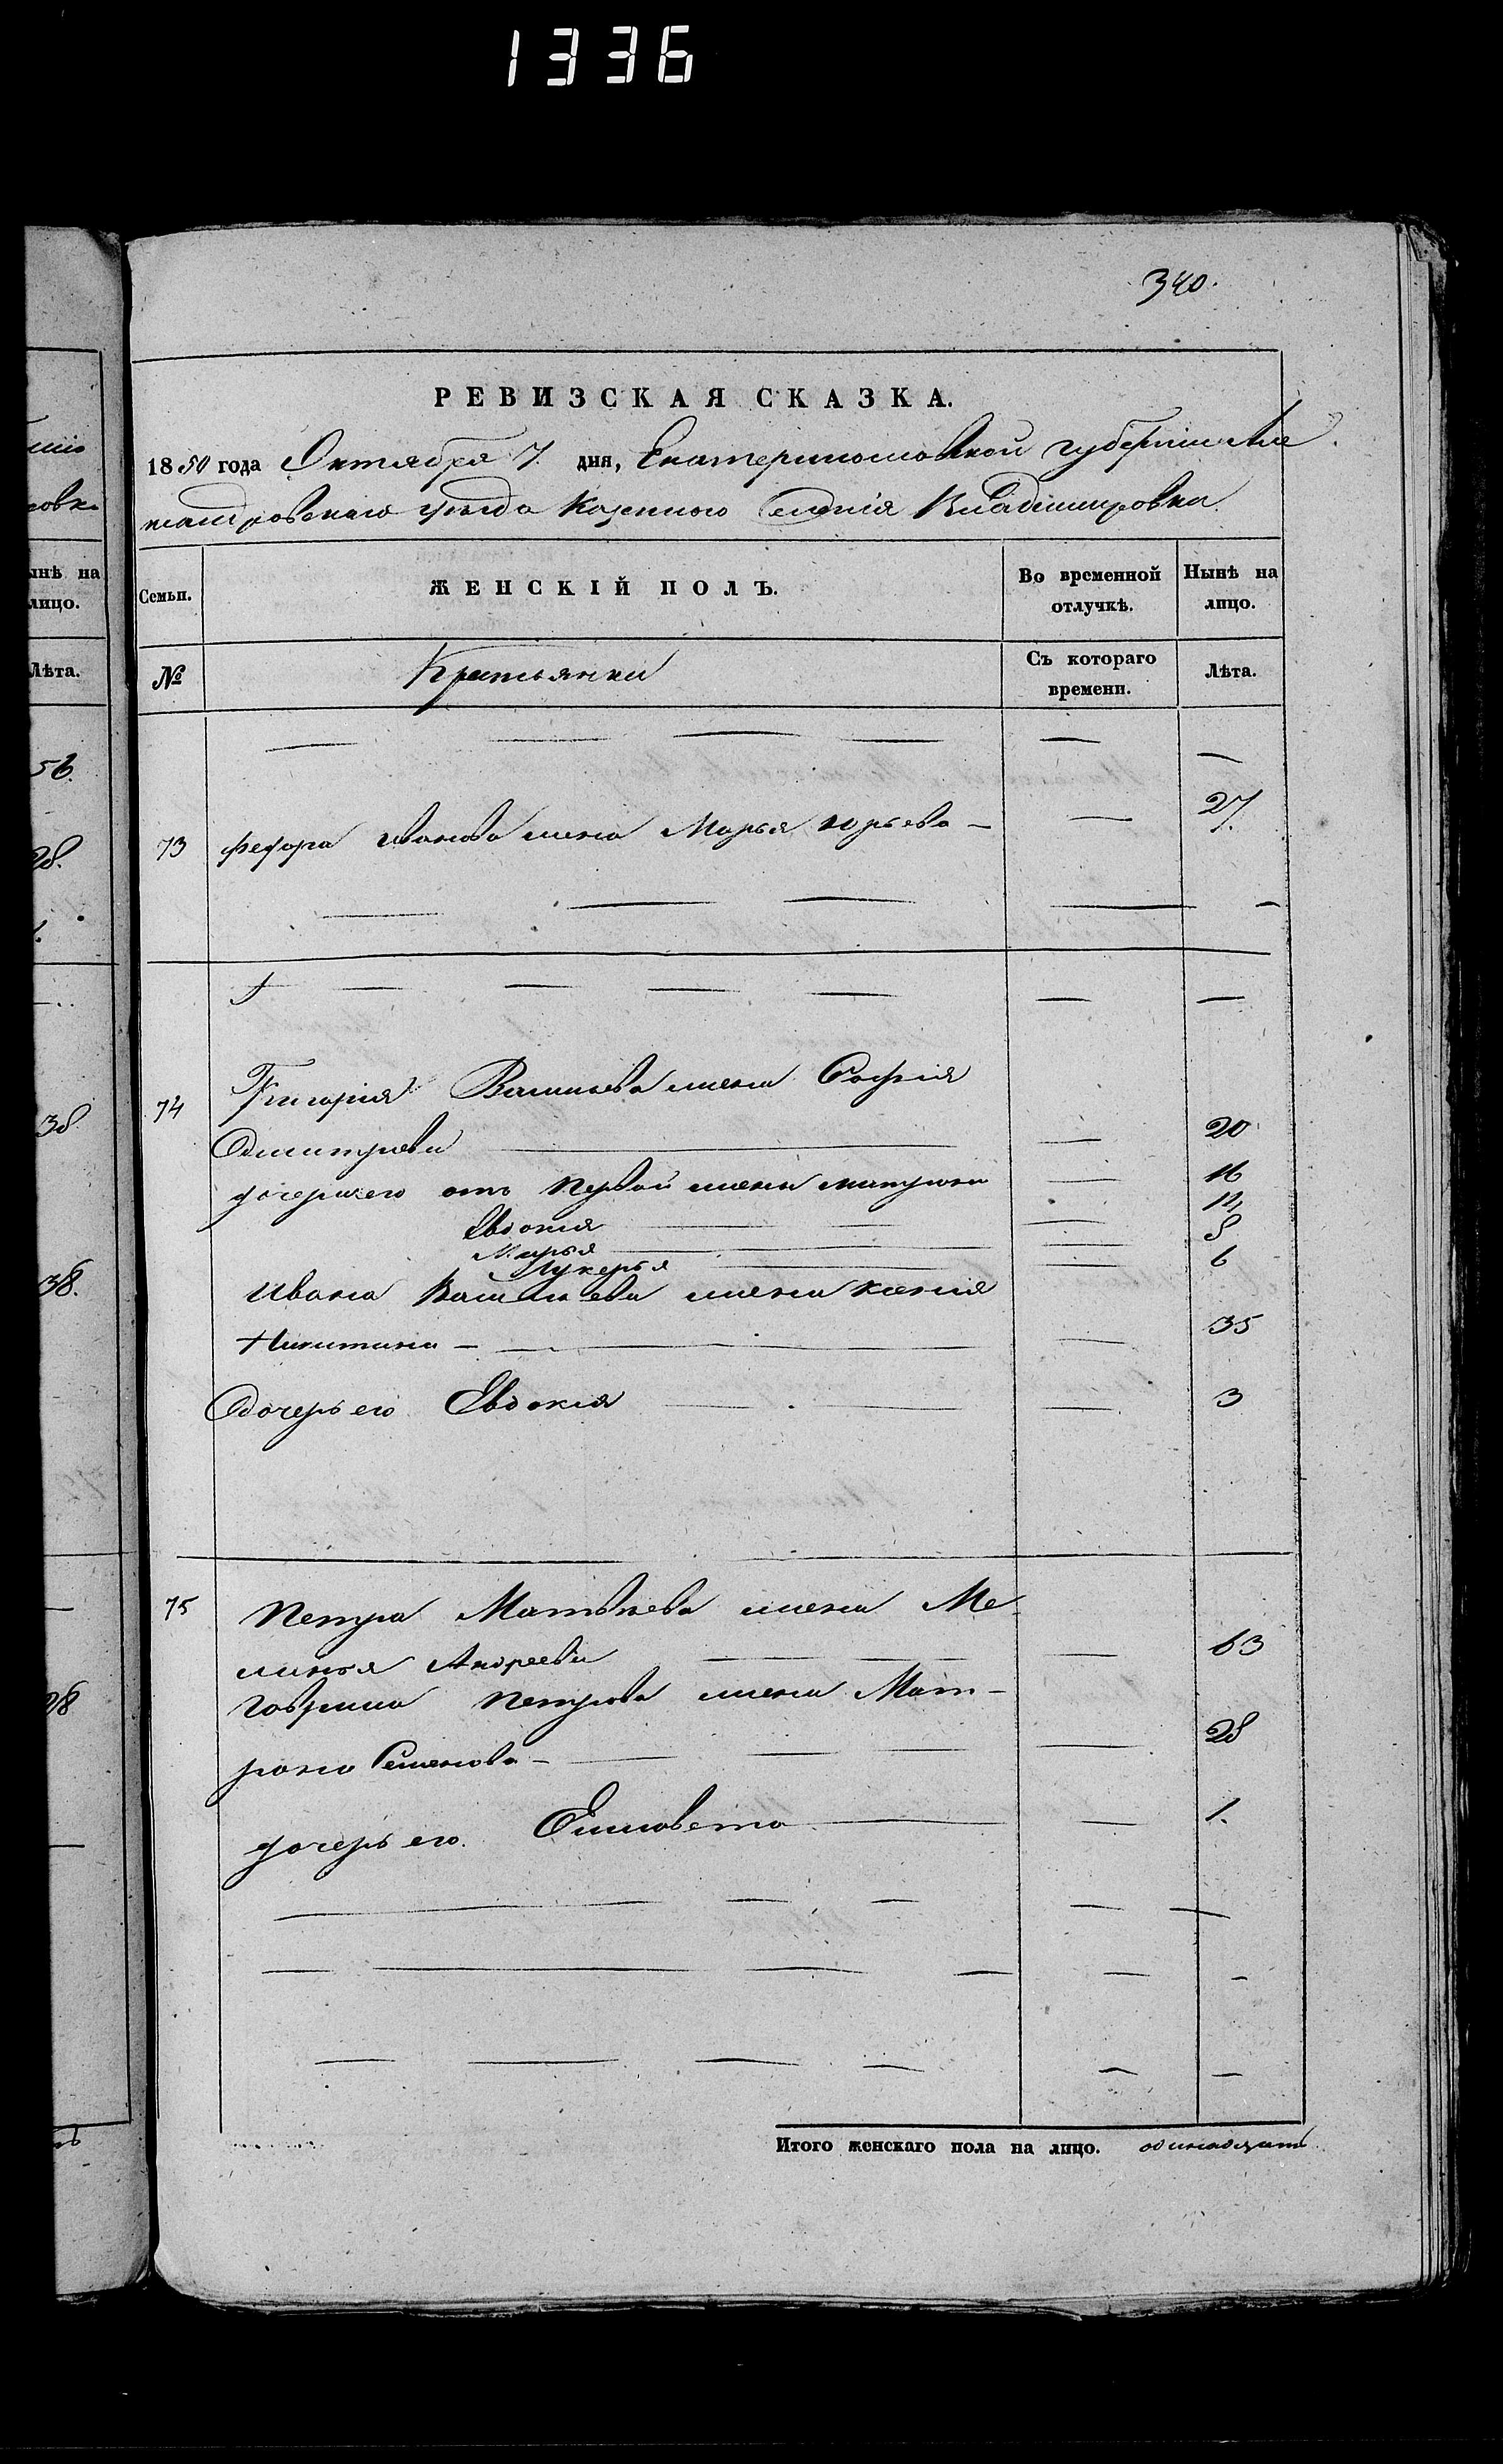 1336
340.
РЕВИЗСКАЯ СКАЗКА.
1850 года Октября 7. дня, Екатеринославской губернии Але
ксандровскаго уѣзда Казенного Селенія Владимировки
Семьи.
ЖЕНСКІЙ ПОЛЪ.
Во временной отлучкѣ.
Нынѣ на лицо.
№
Крестьянки
Съ котораго времени.
Лѣта.
— — — — — —
73 Федора Иванова жена Марья Юрьева — — 27.
— — — — —
— — — — — —
74 Григорія Васильева жена Софья
Дмитріева — — 20
дочери его отъ первой жены Матрона — 16
Евдокія — — 12
Марья — — 8
Лукерья — — 6
Ивана Васильева жена Ксенія
Никитина — — 35
Дочерь его Евдокия — — 3
75 Петра Матвѣева жена Ме
ланья Андреева — — 63
Гаврила Петрова жена Мат-
рона Семенова — — 28
дочерь его. Елисовета — — 1.
— — — — —
— — — — — —
— — — — — —
Итого женскаго пола на лицо. одинадцать
ынѣ на
лицо.
Лѣта.
56.
28.
38
38.